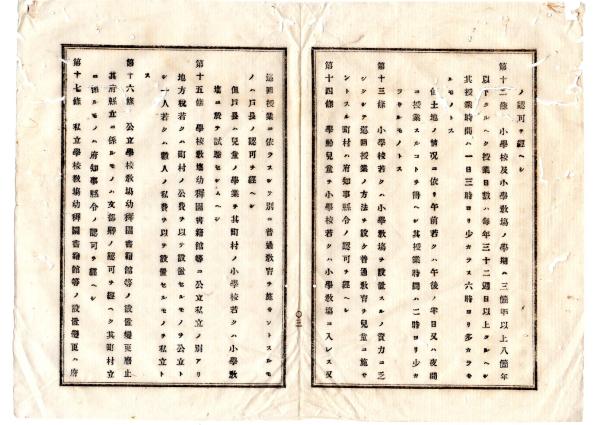 ノ認可ヲ經ヘシ
第十二條 小學校及小學教塲ノ學期ハ三箇年以上八箇年
以下タルヘク授業日數ハ毎年三十二週日以上タルヘシ
其授業時間ハ一日三時ヨリ少カラス六時ヨリ多カラサ
ルモノトス
但土地ノ情況ニ依リ午前若クハ午後ノ半日又ハ夜間
ニ授業スルコトヲ得ヘシ其授業時間ハ二時ヨリ少カ
ラサルモノトス
第十三條 小學校若クハ小學教塲ヲ設クルノ資力ニ乏
シクシテ巡回授業ノ方法ヲ設ケ普通教育ヲ兒童ニ施サ
ントスル町村ハ府知事縣令ノ認可ヲ經ヘシ
第十四條 學齡兒童ヲ小學校若クハ小學教塲ニ入レス又
〇三
巡回授業ニ依ラスシテ別ニ普通教育ヲ施サントスルモ
ノハ戸長ノ認可ヲ經ヘシ
但戸長ハ兒童ノ學業ヲ其町村ノ小學校若クハ小學教
塲ニ於テ試驗セシムヘシ
第十五條 學校教塲幼稺園書籍館等ニ公立私立ノ別アリ
地方税若クハ町村ノ公費ヲ以テ設置セルモノヲ公立ト
シ一人若クハ數人ノ私費ヲ以テ設置セルモノヲ私立ト
ス
第十六條 公立學校教塲幼稺園書籍館等ノ設置變更廢止
其府縣立ニ係ルモノハ文部卿ノ認可ヲ經ヘク其町村立
ニ係ルモノハ府知事縣令ノ認可ヲ經ヘシ
第十七條 私立學校教塲幼稺園書籍館等ノ設置變更ハ府